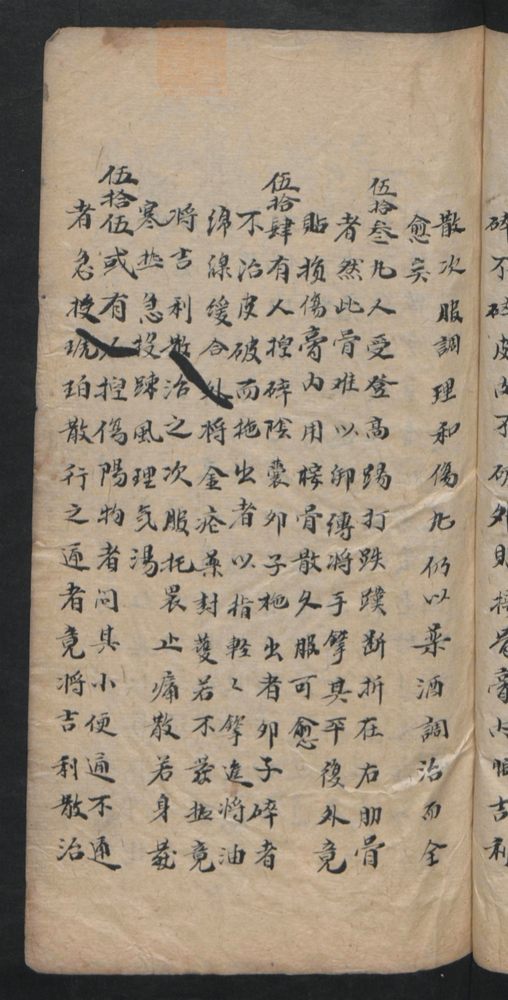 碎不碎皮內不破外貝接骨膏內服吉利
散次服調理和傷丸仍以藥酒調治而全
愈矣
伍拾叁凡人受登高踢打跌蹼斷折在右肋骨
者然此骨难以卸縛將手拏其平復外竟
貼損傷膏內用接骨散久服可愈
伍拾肆有人揑碎陰囊卵子拖出者卵子碎者
不治皮破而拖出者以指輕々拏進將油
綿線缓合外将金疮藥封護若不發热竟
將吉利散治之次服托裏止痛散若身發
寒热急投踈風理気湯
伍拾伍或有人揑傷陽物者问其小便通不通
者急投琥珀散行之通者竟將吉利散治